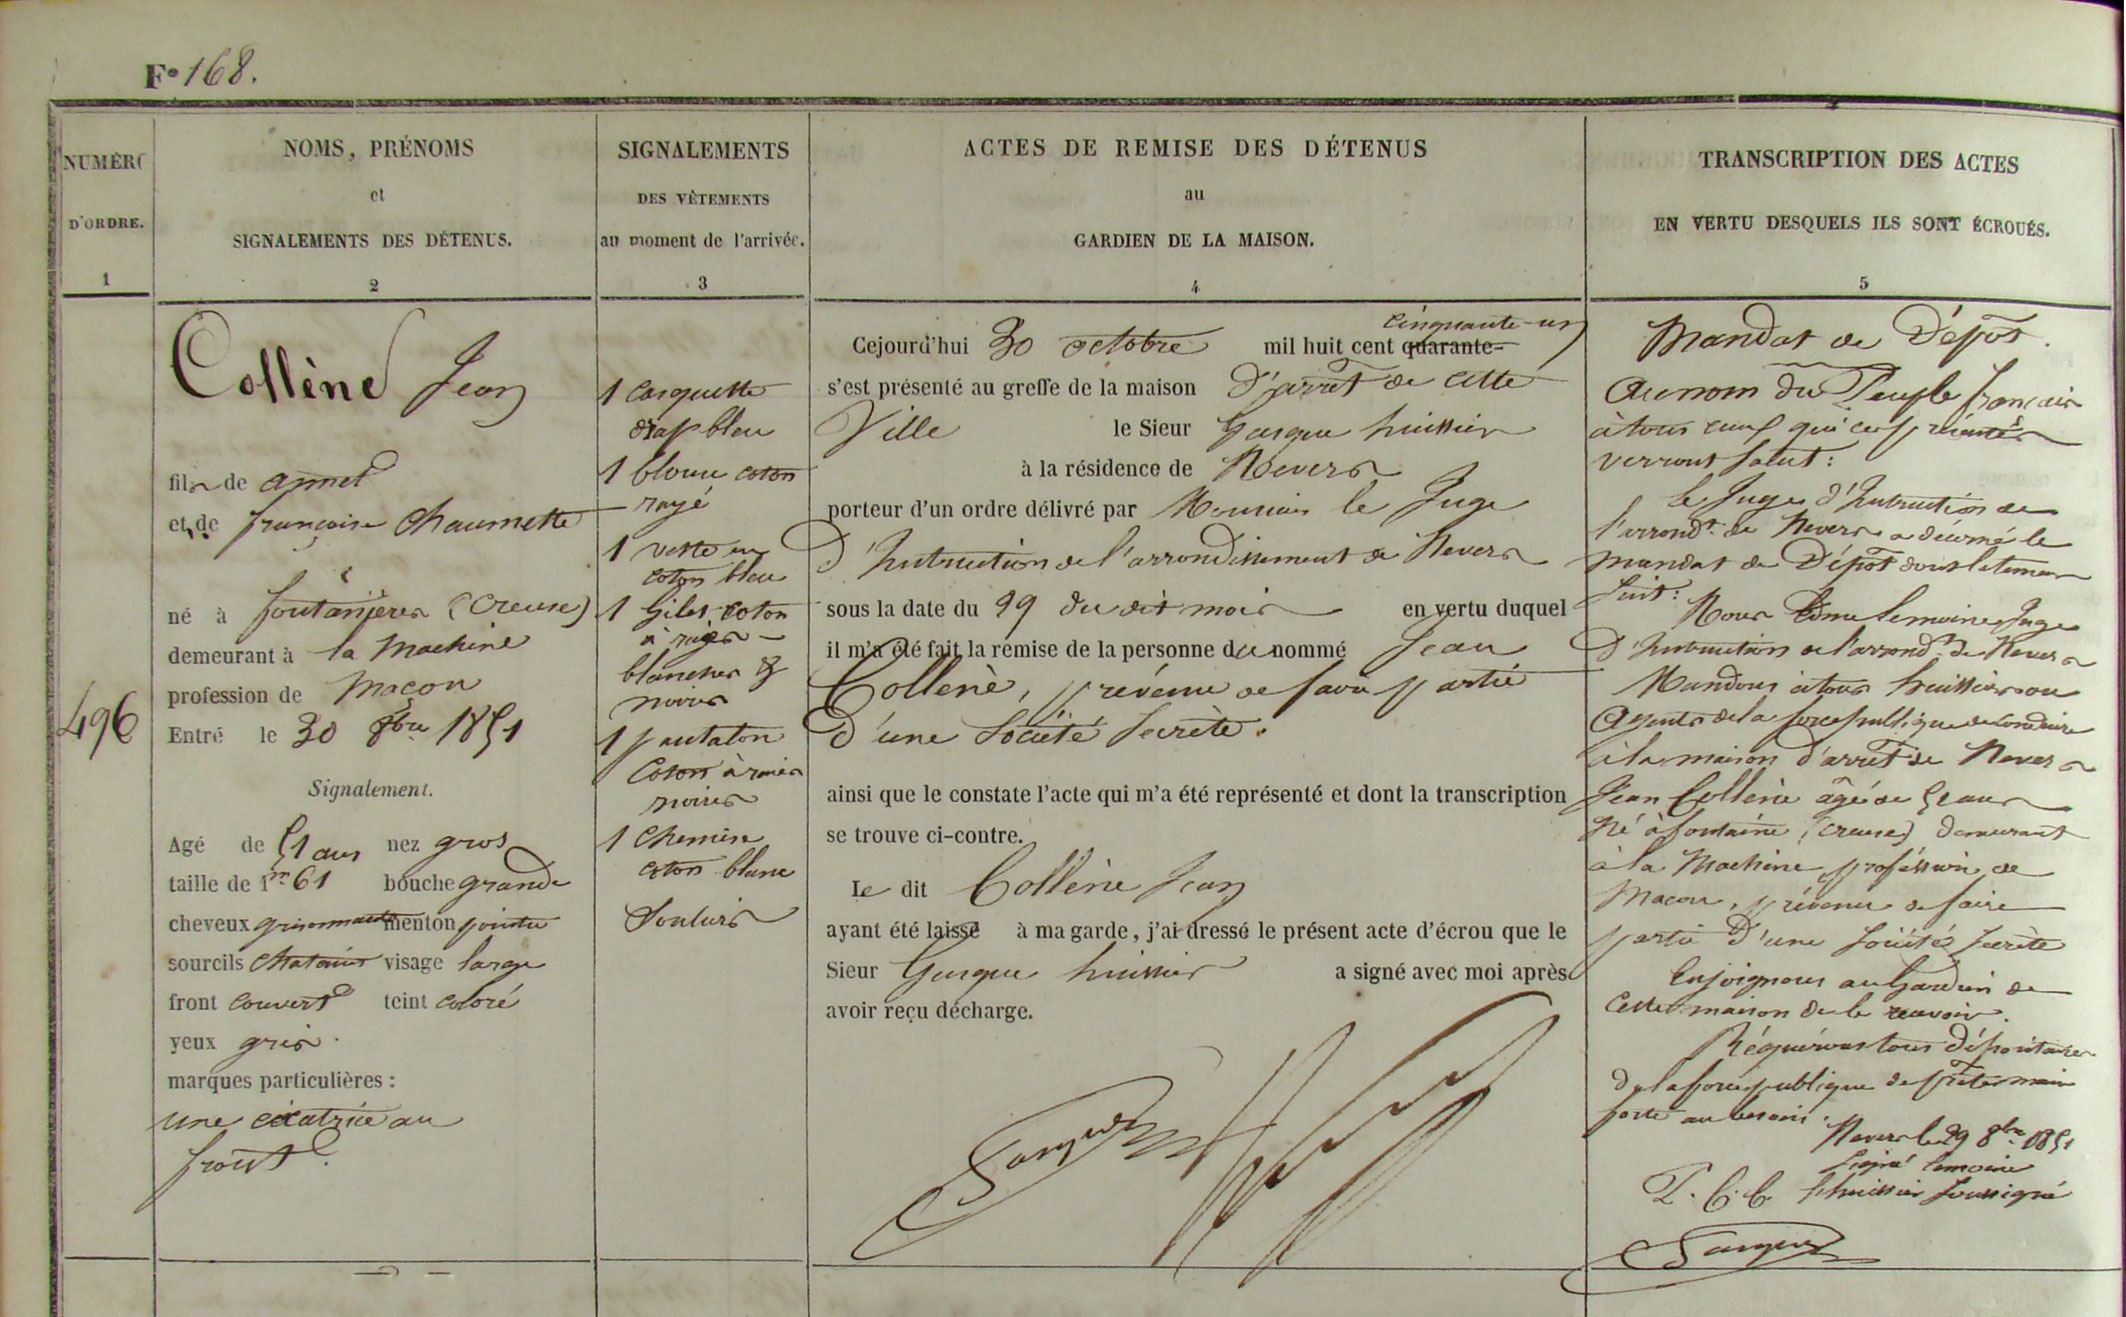 Fo 168.
NUMÉRO
D'ORDRE.
1
NOMS, PRÉNOMS
et
SIGNALEMENTS DES DÉTENUS.
2
SIGNALEMENTS
DES VÊTEMENTS
au moment de l'arrivée.
3
ACTES DE REMISE DES DÉTENUS
au
GARDIEN DE LA MAISON.
4
TRANSCRIPTION DES ACTES
EN VERTU DESQUELS ILS SONT ÉCROUÉS.
5
496
Collène Jean
fils de annet
et de françoise Chaumette
né à fontanières (Creuse)
demeurant à la Machine
profession de Maçon
Entré le 30 8bre 1851
Signalement.
Agé de 51 ans nez gros
taille de 1m 61 bouche grande
cheveux grisonnants menton pointu
sourcils chatains visage large
front couvert teint coloré
yeux gris.
marques particulières :
une cicatrice au
front.
1 casquette
drap bleu
1 blouse coton
rayé
1 veste en
coton bleu
1 Gilet coton
à raies
blanches &
noires
1 pantalon
Coton à raies
noires
1 Chemise
coton blanc
Souliers
cinquante-un
Cejourd'hui 30 octobre mil huit cent quarante-
s'est présenté au greffe de la maison d'arrêt de cette
Ville le Sieur Gasque huissier
à la résidence de Nevers
porteur d'un ordre délivré par Monsieur le Juge
d'Instruction de l'arrondissement de Nevers
sous la date du 29 du dit mois en vertu duquel
il m'a été fait la remise de la personne du nommé Jean
Collene, prévenu de faire partie
d'une Société Secrète.
ainsi que le constate l'acte qui m'a été représenté et dont la transcription
se trouve ci-contre.
Le dit Collène Jean
ayant été laissé à ma garde, j'ai dressé le présent acte d'écrou que le
Sieur Gasque huissier a signé avec moi après
avoir reçu décharge.
Gasque
Mandat de Dépôt.
Au nom du Peuple français
à tous ceux qui ces présentes
verront Salut :
Le Juge d'Instruction de
l'arrondt. de Nevers a décerné le
mandat de Dépôt dont la teneur
suit :
Nous Come Lemoine, Juge
d'Instruction de l'arrondt. de Nevers
Mandons à tous huissiers ou
Agents de la force publique de conduire
à la maison d'arrêt de Nevers
Jean Collène âgé de 51 ans
Né à fontaine (Creuse) demeurant
à la Machine, profession de
Macon, prévenu de faire
partie d'une Société Secrète
Enjoignons au Gardien de
Cette maison de le recevoir.
Réquérons tous dépositaires
de la force publique de prêter main
forte au besoin.
Nevers le 29 8bre 1851
Signé Lemoine
P. C. C. L'huissier Soussigné
Gasque